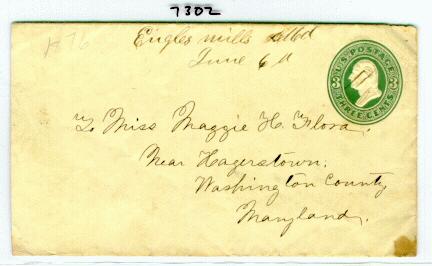 7302
1876
Engles mills Md
June 6d
U.S. POSTAGE
THREE CENTS
To Miss Maggie H. Flora.
Near Hagerstown.
Washington County
Maryland.